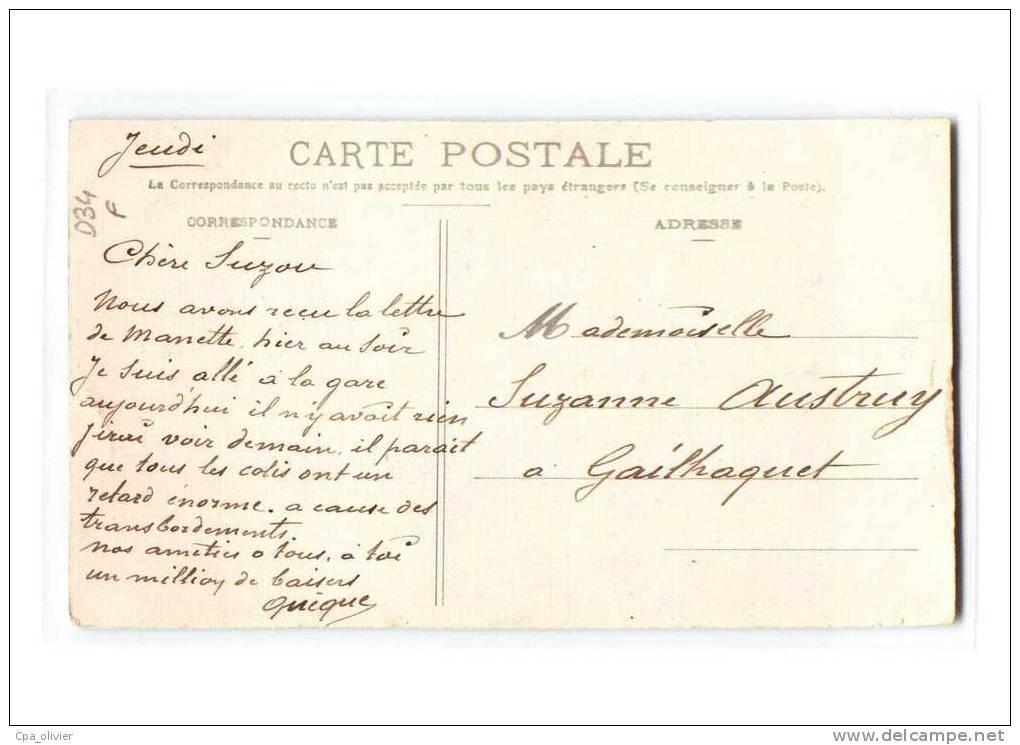 Jeudi
CARTE POSTALE
La Correspondance au recto n'est pas acceptée par tous les pays étrangers (Se renseigner à la Poste).
D34
F
CORRESPONDANCE
Chère Suzou
Nous avons reçu la lettre
de Manette hier au soir
Je suis allé à la gare
aujourd'hui il n'y avait rien
j'irai voir demain, il parait
que tous les colis ont un
retard énorme. a cause des
transbordements.
nos amitiés a tous, à toi
un million de baisers
ADRESSE
Mademoiselle
Suzanne Austruy
a Gailhaguet
Cpa_olivier
www.delcampe.net